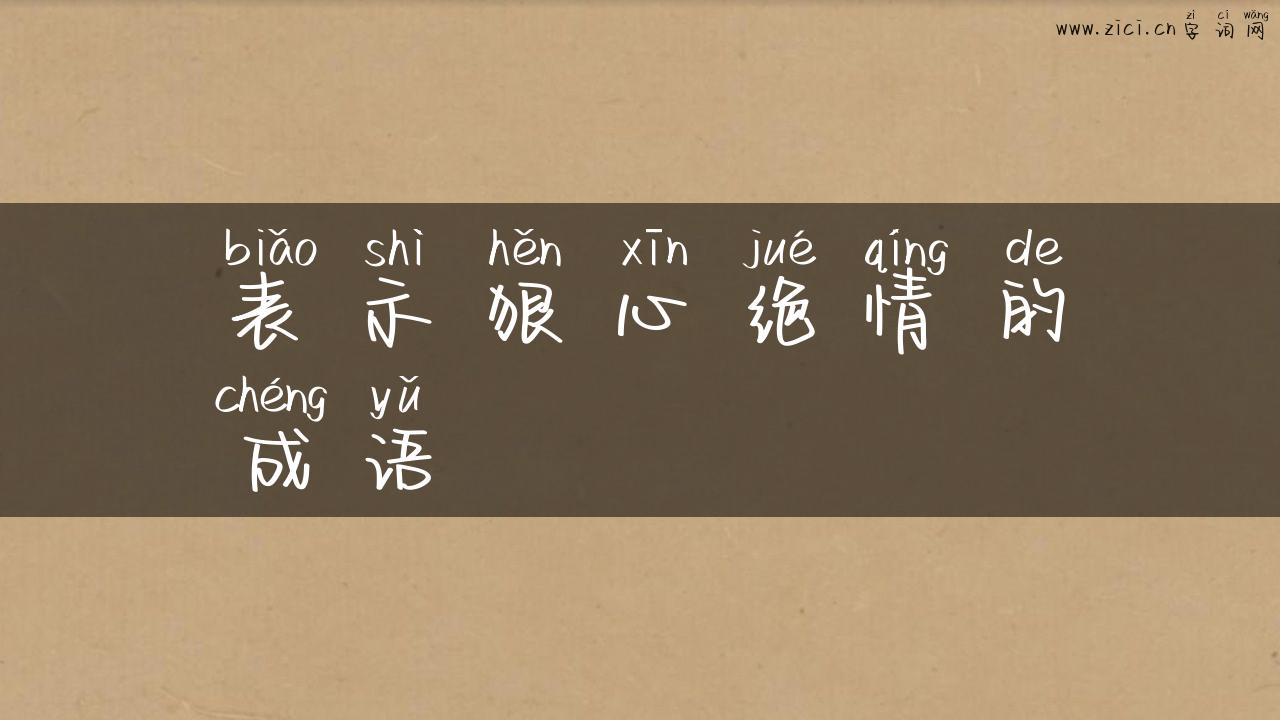 zì cí wǎng
www.zici.cn 字词网
biǎo shì hěn xīn jué qíng de
表示狠心绝情的
chéng yǔ
成语